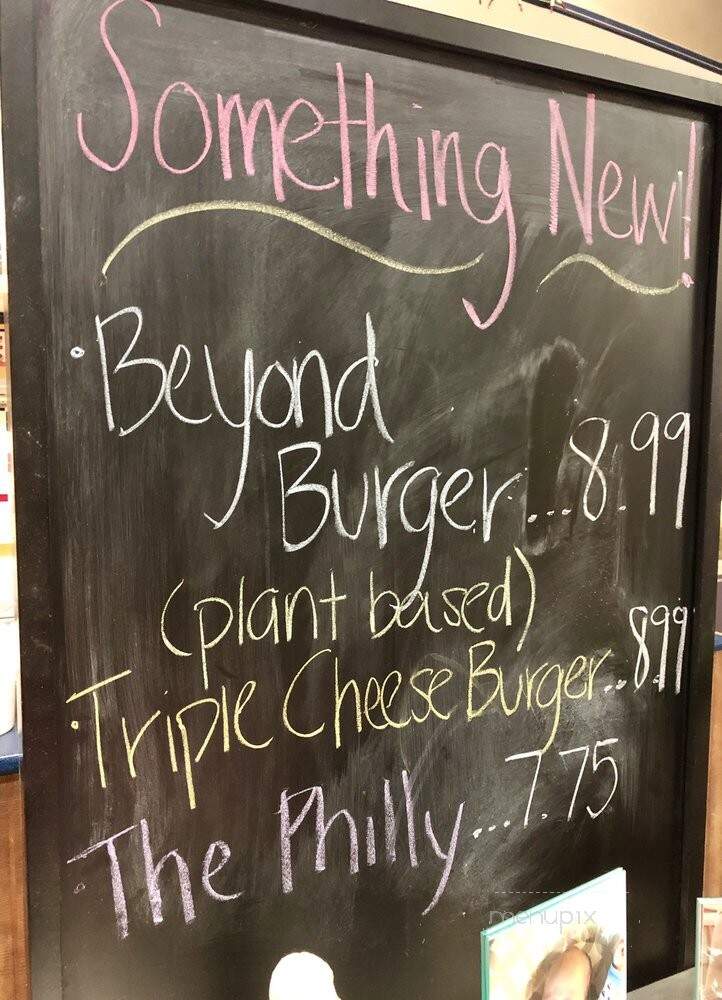 Something New!
• Beyond
Burger...8.99
(plant based)
• Triple Cheese Burger..8.99
• The Philly...7.75
menupix